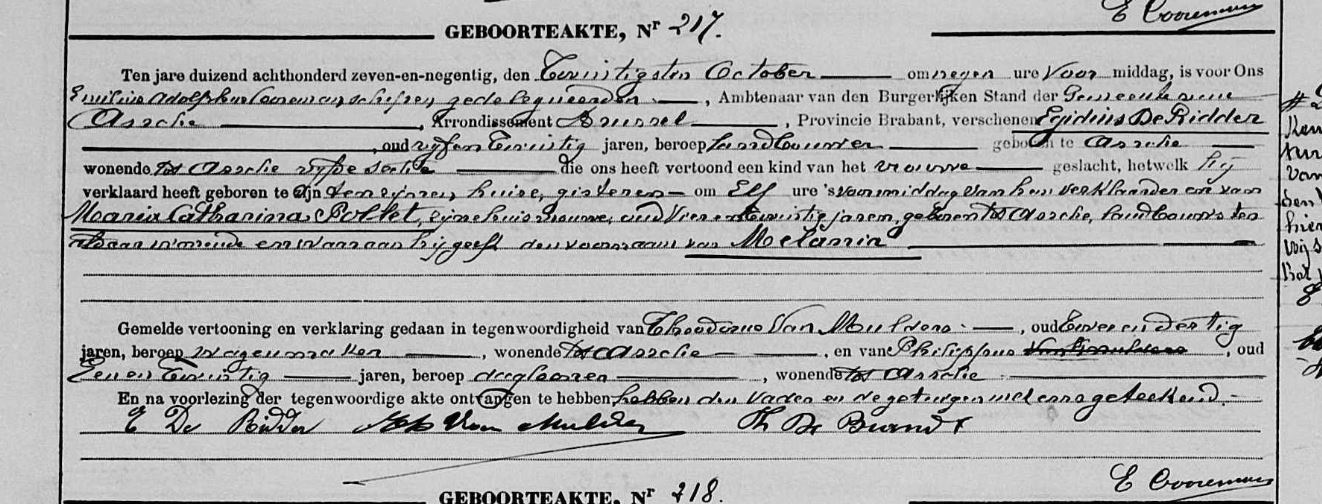 E Cooremans
GEBOORTEAKTE, Nr 217.
Ten jare duizend achthonderd zeven-en-negentig, den Twintigsten October om negen ure voor middag, is voor Ons
Emilius Adolphus Cooremans schepen gedelegueerden, Ambtenaar van den Burgerlijken Stand der Gemeente
Assche, Arrondissement Brussel, Provincie Brabant, verschenen Egidius De Ridder
, oud vijf en Twintig jaren, beroep landbouwer geboren te Assche
wonende tot Assche die ons heeft vertoond een kind van het vrouwe geslacht, hetwelk hij
verklaard heeft geboren te zijn ten zijnen huize, gisteren om Elf ure 's voormiddag van hem verklaarder en van
Maria Catharina, zijne huisvrouwe, oud Vier en twintig jaren, geboren tot Assche, landbouwster
aldaar wonende en waaraan hij geeft den voornaam van Melania
Gemelde vertooning en verklaring gedaan in tegenwoordigheid van Theodorus Van Mulders, oud Twee en dertig
jaren, beroep wagenmaker, wonende tot Assche, en van Philippus, oud
Een en Twintig jaren, beroep daglooner, wonende tot Assche
En na voorlezing der tegenwoordige akte ontvangen te hebben, hebben den Vader en de getuigen met ons geteekend.
E De Ridder Van Mulders Ph De Brandt
E Cooremans
GEBOORTEAKTE, Nr 218.